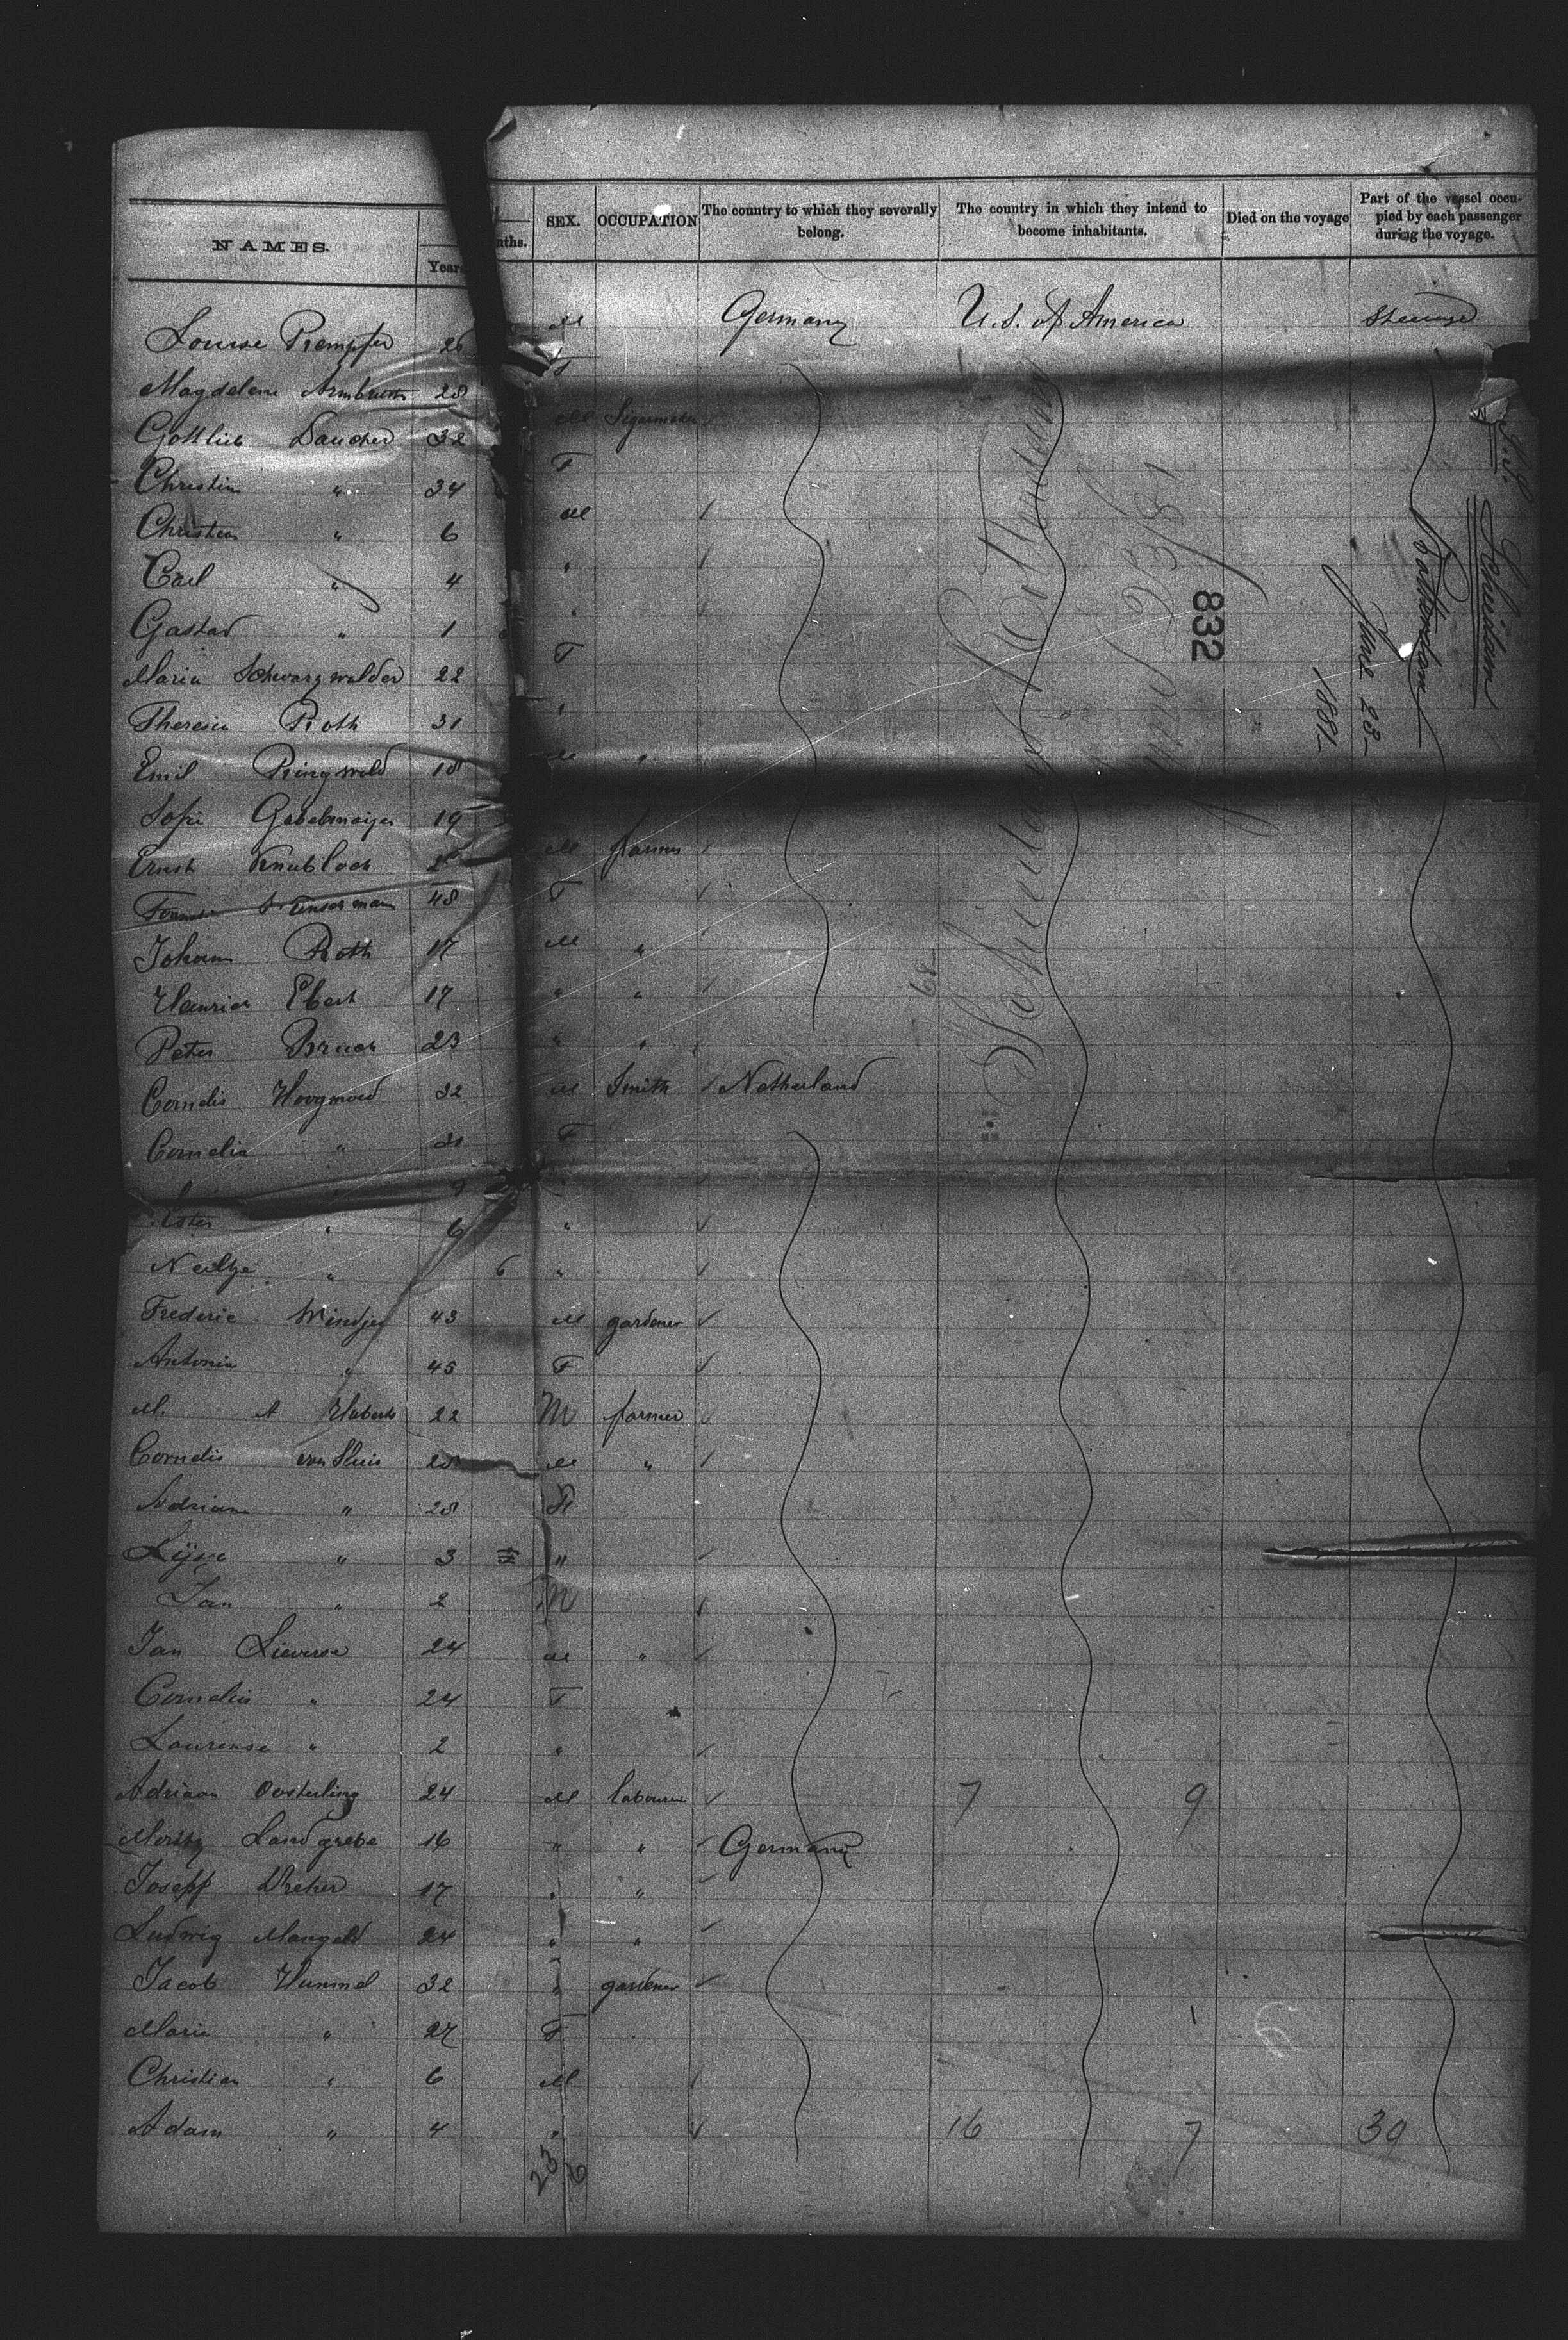 NAMES. Years nths. SEX. OCCUPATION The country to which they severally belong. The country in which they intend to become inhabitants. Died on the voyage Part of the vessel occupied by each passenger during the voyage.
Louise 26 M Germany U.S. of America Steerage
Magdelene 28 F
Gottlieb 32 M
Christin " 34 F
Christian " 6 M
Carl " 4 "
Gastav " 1 "
Maria Schwarzwalder 22 F
Theresia Roth 31 "
Emil Ringwald 18 M "
Sofie 19
Ernst Knubloch M farmer
48 F
Johann Roth 17 M "
Heinrich Ebert 17 " "
Peter Bruch 23 " "
Cornelis Hoogmoed 32 M Smith Netherland
Cornelia " 31 F
" 9
" 6 "
Neeltje " 6 "
Frederic 43 M gardener
Antonia " 45 F
M. A Huberts 22 M farmer
Cornelis van Sluis 28 M "
Adriana " 28 F
Lijse " 3 "
Jan " 2 M
Jan Lieverse 24 M "
Cornelia " 24 F
Laurense " 2 "
Adriaan Oosterling 24 M labourer 7 9
Moritz Landgrebe 16 " " Germany
Joseff 17 " "
Ludwig Mangold 24 " "
Jacob Hummel 32 " gardener
Marie " 27 F
Christian " 6 M
Adam " 4 " 16 7 39
23/6
S.S. Schiedam
Rotterdam
June 23
1881
832
Schiedam Rotterdam
June 23/81
68